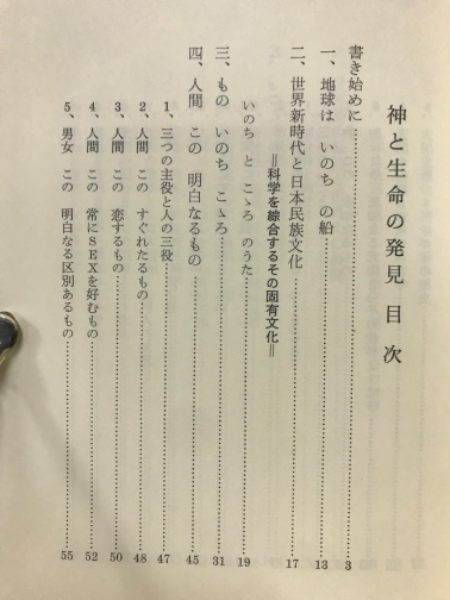 神と生命の発見 目次
書き始めに……………………3
一、地球は いのち の船……………………13
二、世界新時代と日本民族文化……………………17
＝科学を綜合するその固有文化＝
いのち と こゝろ のうた……………………19
三、もの いのち こゝろ……………………31
四、人間 この 明白なるもの……………………45
1、三つの主役と人の三役……………………47
2、人間 この すぐれたるもの……………………48
3、人間 この 恋するもの……………………50
4、人間 この 常にSEXを好むもの……………………52
5、男女 この 明白なる区別あるもの……………………55